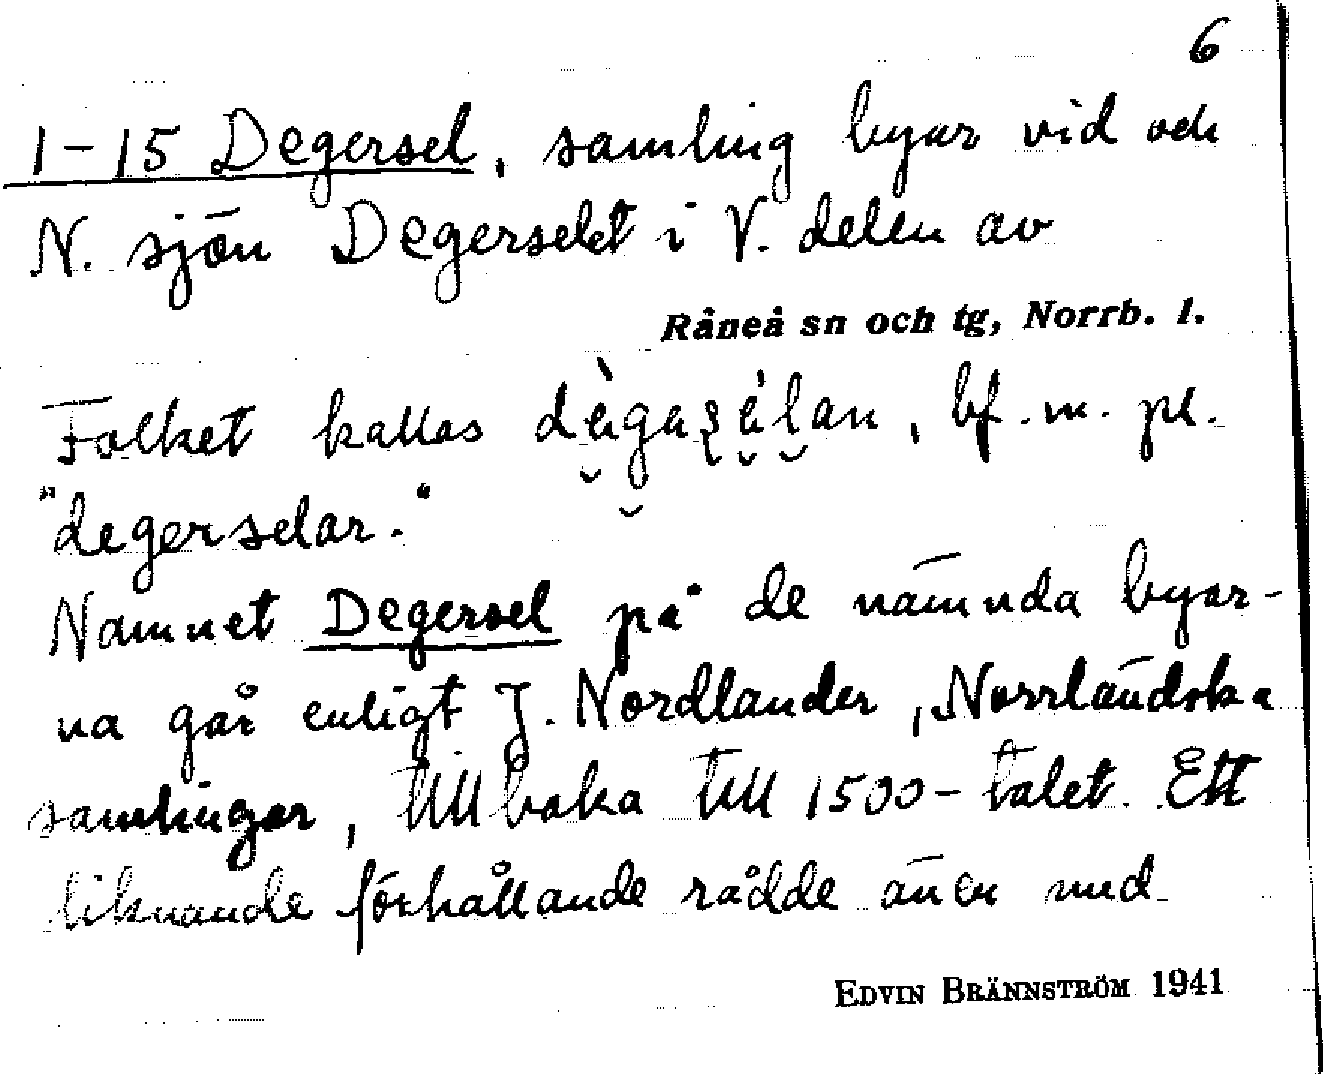 6
1-15 Degersel, samling byar vid och
N. sjön Degerselet i V. delen av
Råneå sn och tg, Norrb. l.
Folket kallas , bf. m. pl.
"degerselar."
Namnet Degersel på de nämnda byar-
na går enligt J. Nordlander, Norrländska
samlingar, tillbaka till 1500-talet. Ett
liknande förhållande rådde även med
EDVIN BRÄNNSTRÖM 1941